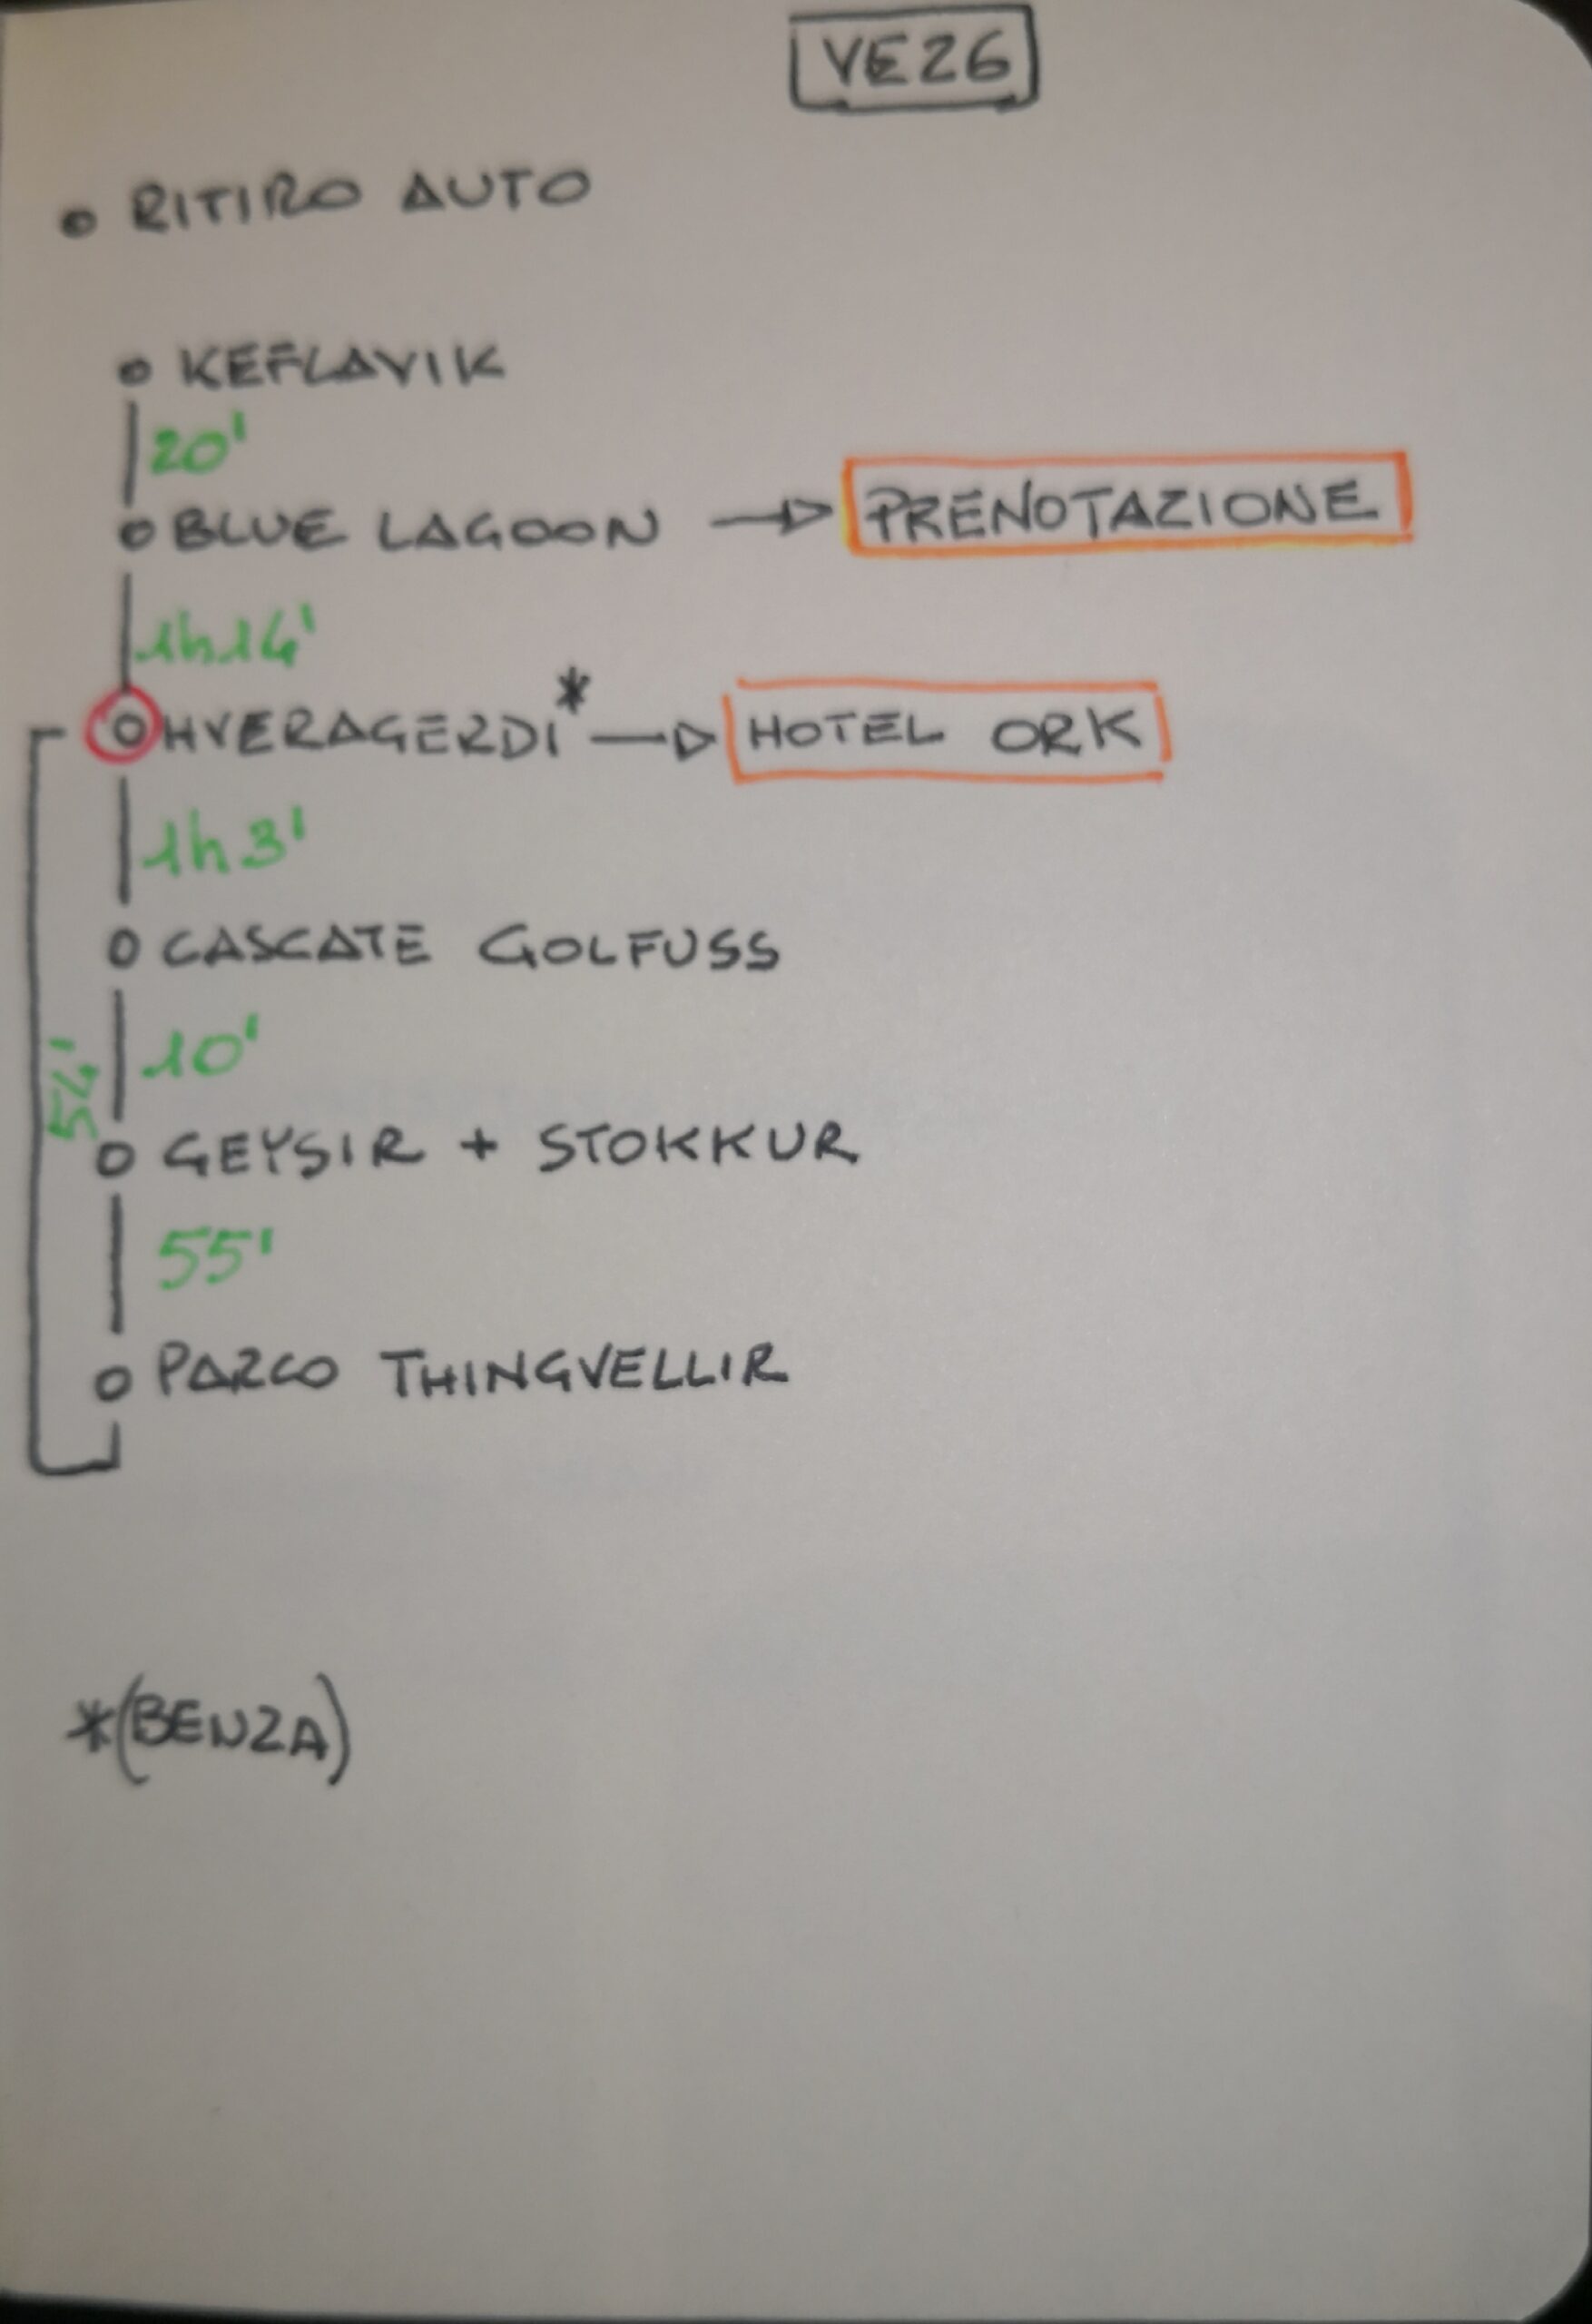 VE26
RITIRO AUTO
KEFLAVIK
20'
BLUE LAGOON → PRENOTAZIONE
1h14'
HVERAGERDI* → HOTEL ORK
1h3'
CASCATE GOLFUSS
10'
54'
GEYSIR + STOKKUR
55'
PARCO THINGVELLIR
*(BENZA)